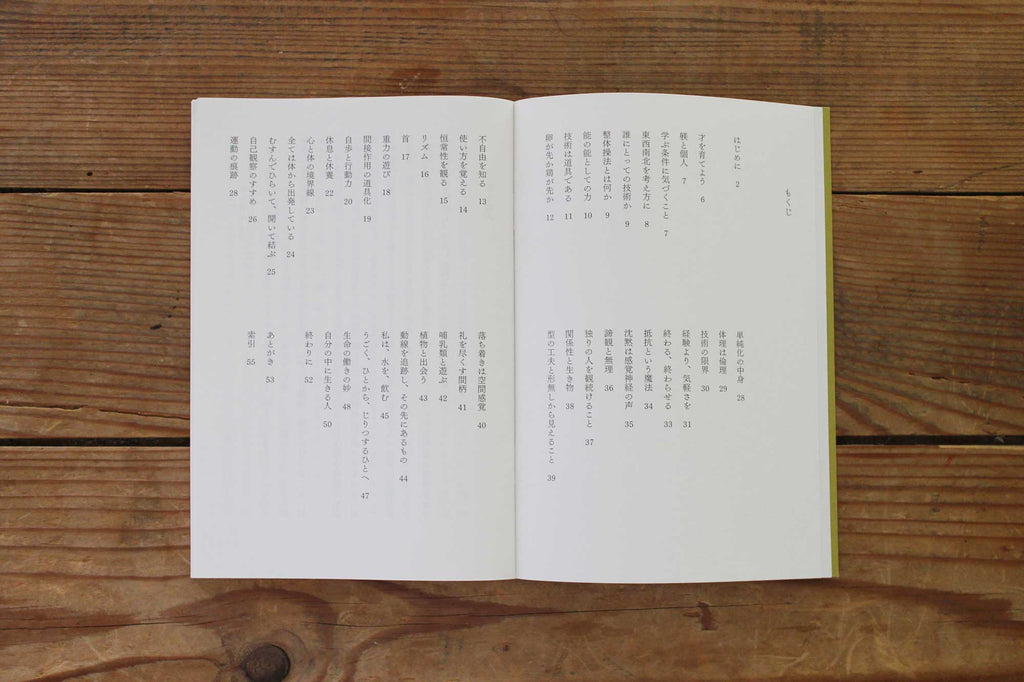 もくじ
はじめに 2
才を育てよう 6
躾と個人 7
学ぶ条件に気づくこと 7
東西南北を考え方に 8
誰にとっての技術か 9
整体操法とは何か 9
能の能としての力 10
技術は道具である 11
卵が先か鶏が先か 12
不自由を知る 13
使い方を覚える 14
恒常性を観る 15
リズム 16
首 17
重力の遊び 18
間接作用の道具化 19
自歩と行動力 20
休息と休養 22
心と体の境界線 23
全ては体から出発している 24
むすんでひらいて、開いて結ぶ 25
自己観察のすすめ 26
運動の痕跡 28
単純化の中身 28
体理は倫理 29
技術の限界 30
経験より、気軽さを 31
終わる、終わらせる 33
抵抗という魔法 34
沈黙は感覚神経の声 35
諦観と無理 36
独りの人を観続けること 37
関係性と生き物 38
型の工夫と形無しから見えること 39
落ち着きは空間感覚 40
礼を尽くす間柄 41
哺乳類と遊ぶ 42
植物と出会う 43
動線を追跡し、その先にあるもの 44
私は、水を、飲む 45
うごく、ひとから、じりつするひとへ 47
生命の働きの妙 48
自分の中に生きる人 50
終わりに 52
あとがき 53
索引 55